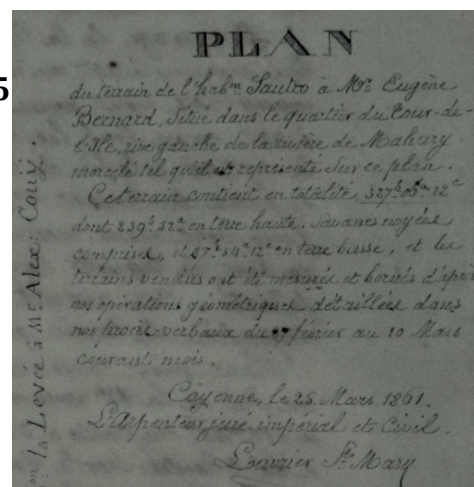 5
PLAN
du terrain de l'hab.on Sautro à Mr. Eugène
Bernard, situé dans le quartier du Tour-de-
l'Ile, rive gauche de la rivière de Mahury
morcelé tel qu'il est représenté sur ce plan.
Ce terrain contient en totalité, 327h.06a.12c
dont 239h.52a en terre haute, savanes noyées
comprises, et 87h.54a.12c en terre basse, et les
terrains vendus ont été mesurés et bornés d'après
nos opérations géométriques détaillées dans
nos procès-verbaux du 27 février au 10 Mars
courant mois.
Cayenne, le 25 Mars 1861.
L'Arpenteur juré impérial et Civil.
Louvrier St. Mary
la Levée à Mr. Alex: Couÿ.